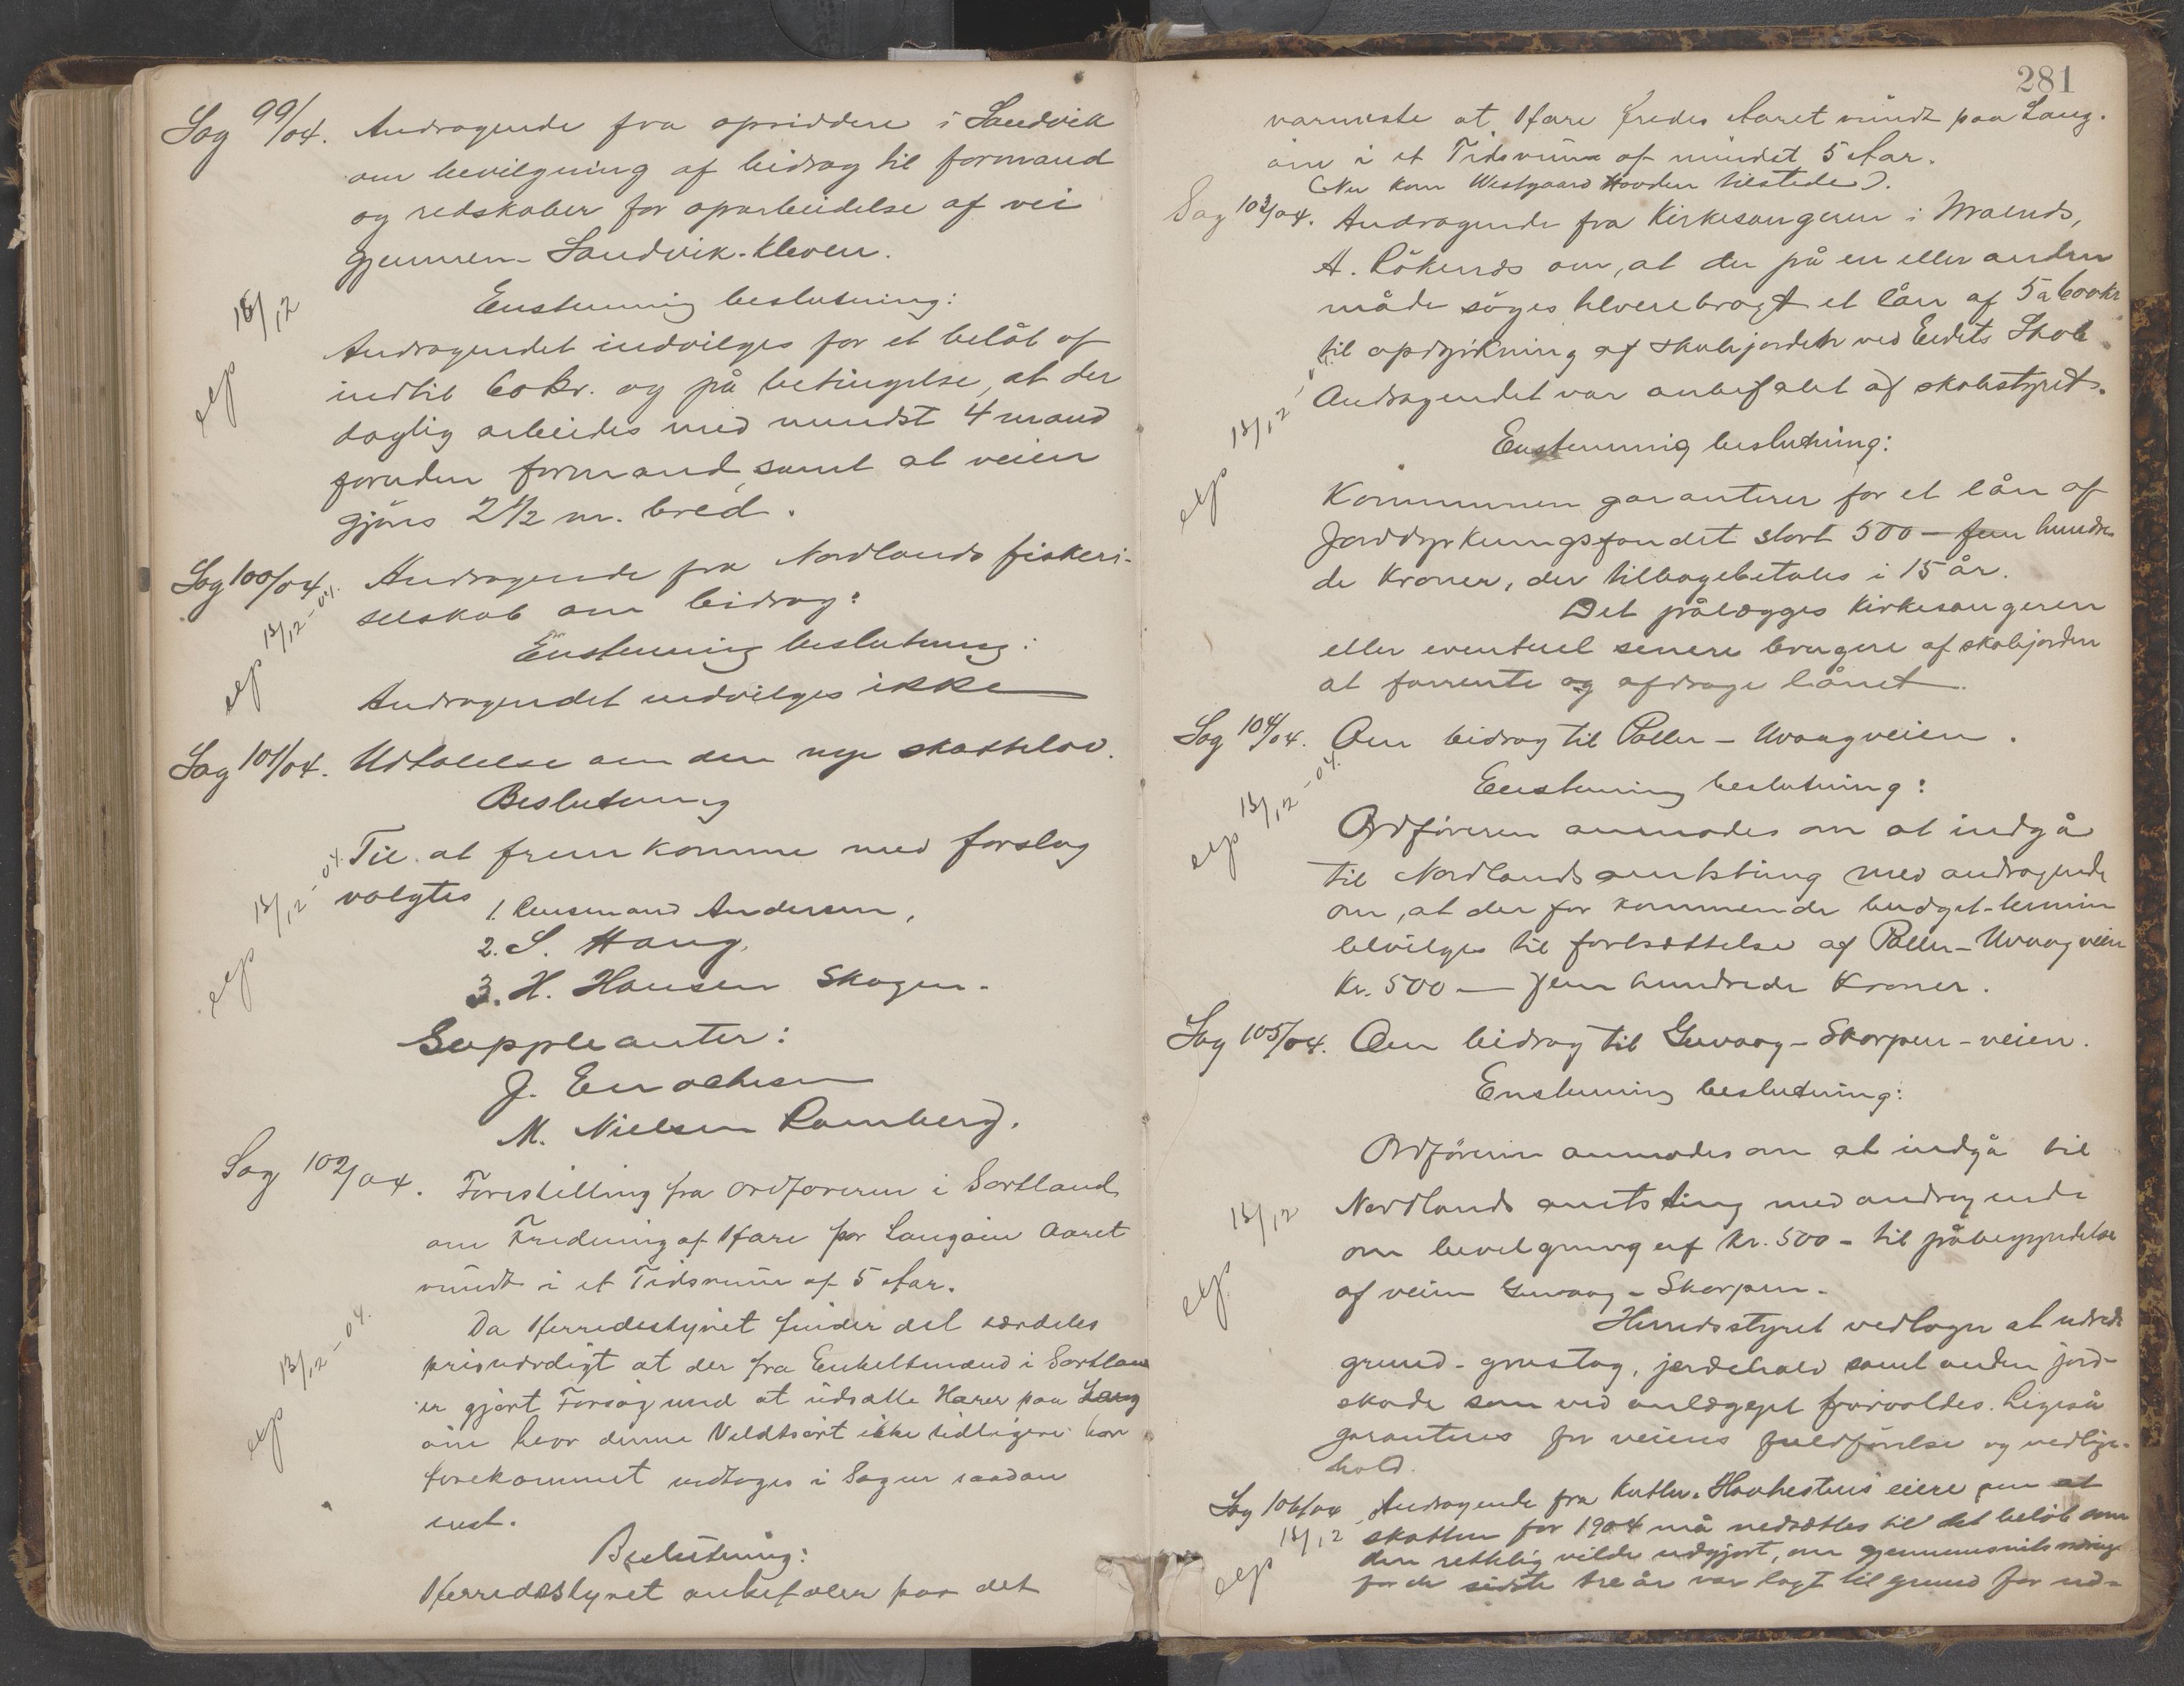 Sag 99/04. Andragende fra opsiddere i Sandvik
om bevilgning af bidrag til formand
og redskaber for oparbeidelse af vei
gjennem Sandvik-kleven.
Enstemmig beslutning:
13/12
exp
Andragendet indvilges for et beløb af
indtil 60 kr. og på betingelse, at der
daglig arbeides med mindst 4 mand
foruden formand, samt at veien
gjøres 2 1/2 m. bred.
Sag 100/04. Andragende fra Nordlands fiskeri-
selskab om bidrag:
exp 13/12-04.
Enstemmig beslutning:
Andragendet indvilges ikke
Sag 101/04. Udtalelse om den nye skattelov.
Beslutning
exp 13/12-04.
Til at fremkomme med forslag
valgtes
1. Lensmand Andersen,
2. S. Haug,
3. H. Hansen Skagen.
Suppleanter:
J. Enochsen
M. Nielsen Ramberg.
Sag 102/04. Forestilling fra Ordføreren i Sortland
om Fredning af Hare paa Langøen Aaret
rundt i et Tidsrum af 5 Aar.
exp 13/12-04.
Da Herredsstyret finder det særdeles
prisværdigt at der fra Enkeltmænd i Sortland
er gjort Forsøg med at udsætte Harer paa Lang
øen hvor denne Vildtsort ikke tidligere har
forekommet indtages i Sagen saadan
Beslutning:
Herredsstyret anbefaler paa det
281
varmeste at Hare fredes Aaret rundt paa Lang-
øen i et Tidsrum af mindst 5 Aar.
(Nu kom Westgaard Hovden tilstede).
Sag 103/04. Andragende fra Kirkesangeren i Malnes,
A. Rökenes om, at der på en eller anden
måde søges tilveiebragt et lån af 5 a 600 kr
til opdyrkning af skolejorden ved Eidets Skole.
Andragendet var anbefalet af skolestyret.
exp 13/12-04.
Enstemmig beslutning:
Kommunen garanterer for et lån af
Jorddyrkningsfondet stort 500 — fem hundre-
de Kroner, der tilbagebetales i 15 år.
Det pålægges Kirkesangeren
eller eventuel senere brugere af skolejorden
at forrente og afdrage lånet.
Sag 104/04. Om bidrag til Pollen - Uvaagveien.
exp 13/12-04.
Enstemmig beslutning:
Ordføreren anmodes om at indgå
til Nordlands amtsting med andragende
om, at der for kommende budget-termin
bevilges til fortsættelse af Pollen - Uvaagveien
kr. 500 — fem hundrede Kroner.
Sag 105/04. Om bidrag til Guvaag - Skorpen - veien.
Enstemmig beslutning:
Ordføreren anmodes om at indgå til
13/12
exp
Nordlands amtsting med andragende
om bevilgning af kr. 500 - til påbegyndelse
af veien Guvaag - Skorpen.
Herredsstyret vedtager at udrede
grund - grustag, jordehold samt anden jord-
skade som ved anlægget forvoldes. Ligeså
garanteres for veiens fuldførelse og vedlige-
hold.
Sag 106/04 Andragende fra Kutter "Havhesten"s eiere om at
13/12
exp
skatten for 1904 må nedsættes til det beløb som
den rettelig vilde udgjort, om gjennemsnits næring
for de sidste tre år var lagt til grund for ud-